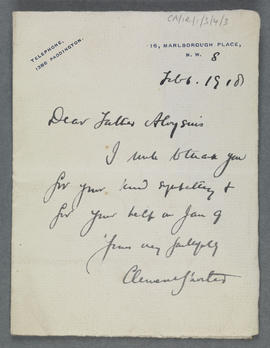 CA/IR/1/3/4/3
TELEPHONE,
1388 PADDINGTON.
16, MARLBOROUGH PLACE,
N.W. 8
Feb. 1918
Dear Father Aloysius
I write to thank you
for your kind sympathy &
for your help on Jan 9
Yours very faithfully
Clement Shorter